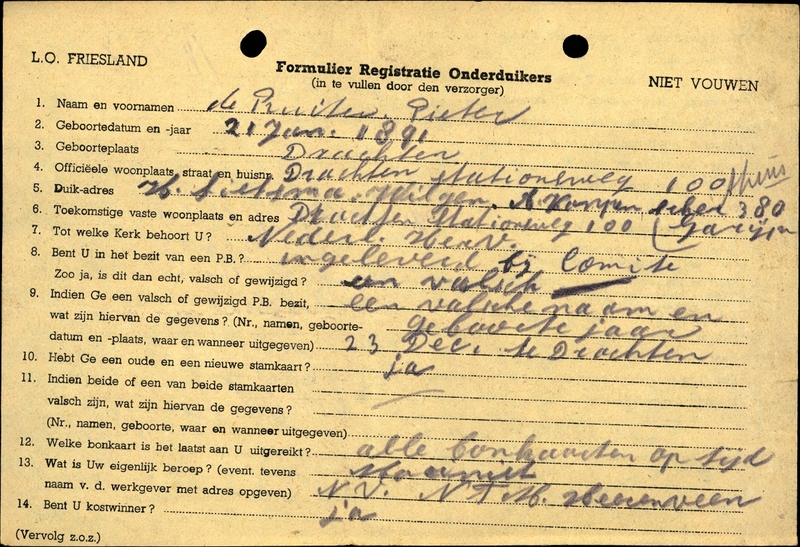 L.O. FRIESLAND
Formulier Registratie Onderduikers
(in te vullen door den verzorger)
NIET VOUWEN
1. Naam en voornamen de Pruiter Pieter
2. Geboortedatum en -jaar 21 Jan. 1891
3. Geboorteplaats Drachten
4. Officiëele woonplaats, straat en huisnr. Drachten Stationsweg 100 thuis
5. Duik-adres H. 380
6. Toekomstige vaste woonplaats en adres Drachten Stationsweg 100 (Garijp
7. Tot welke Kerk behoort U? Nederl. Herv.
8. Bent U in het bezit van een P.B.? ingeleverd bij Comite
Zoo ja, is dit dan echt, valsch of gewijzigd? een valsch
9. Indien Ge een valsch of gewijzigd P.B. bezit, een valsche naam en
wat zijn hiervan de gegevens? (Nr., namen, geboorte- geboorte jaar
datum en -plaats, waar en wanneer uitgegeven) 23 Dec. te Drachten
10. Hebt Ge een oude en een nieuwe stamkaart? ja
11. Indien beide of een van beide stamkaarten
valsch zijn, wat zijn hiervan de gegevens? —
(Nr., namen, geboorte, waar en wanneer uitgegeven)
12. Welke bonkaart is het laatst aan U uitgereikt? alle bonkaarten op tijd
13. Wat is Uw eigenlijk beroep? (event. tevens
naam v. d. werkgever met adres opgeven) N.V. N.T.M. Heerenveen
14. Bent U kostwinner? ja
(Vervolg z.o.z.)